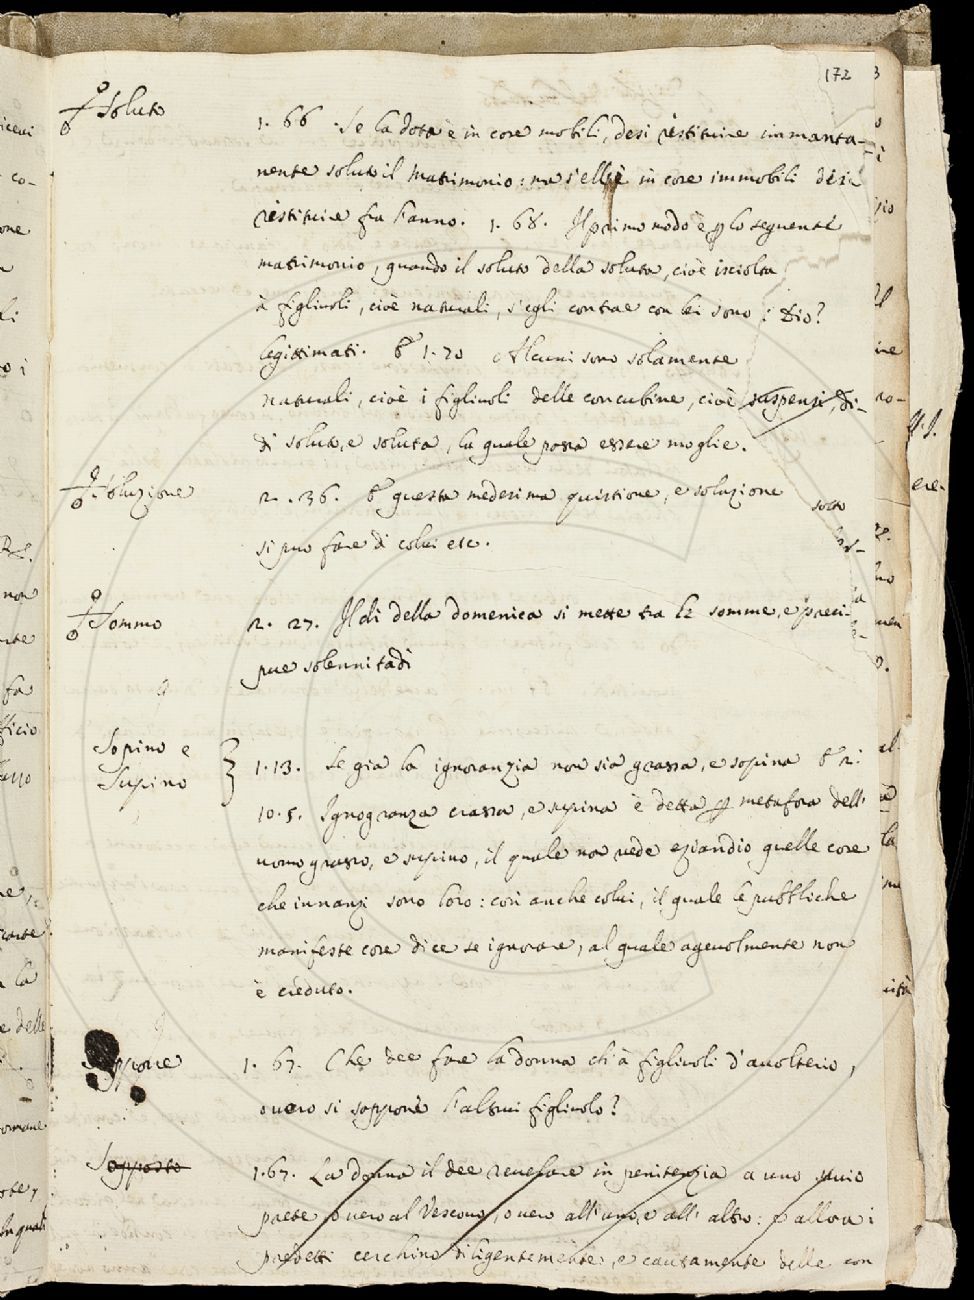 172
Soluto
1. 66. Se la dota è in cose mobili, desi restituire immanta-
nente soluto il matrimonio: ma s'ell'è in cose immobili desi
restituire fra l'anno. 1. 68. Il primo modo è p lo seguente
matrimonio, quando il soluto della soluta, cioè isciolta
à figliuoli, cioè naturali, s'egli contrae con lei sono: Dio?
legittimati. E 1. 70 Alcuni sono solamente
naturali, cioè i figliuoli delle concubine, cioè suspensi, di-
di soluto, e soluta, la quale possa essere moglie.
Soluzione
2. 36. E questa medesima quistione, e soluzione
si puo fare di colui ecc.
Sommo
2. 27. Il dì della domenica si mette tra le somme, e preci-
pue solennitadi
Sopino e
Supino
1. 13. Se gia la ignoranzia non sia grassa, e sopina E 2.
10. 5. Ignogranza crassa, e supina è detta p metafora dell'
uomo grasso, e supino, il quale non vede eziandio quelle cose
che innanzi sono loro: così anche colui, il quale le pubbliche
manifeste cose dice se ignorare, al quale agevolmente non
è creduto.
Sopporre
1. 67. Che dee fare la donna ch'à figliuoli d'avolterio,
overo si soppone l'altrui figliuolo?
Sopposto
1. 67. La donna il dee revelare in penitenzia a uno savio
paete overo al Vescovo, overo all'uno, e all'altro: e allora i
predetti cerchino diligentemente, e cautamente delle con